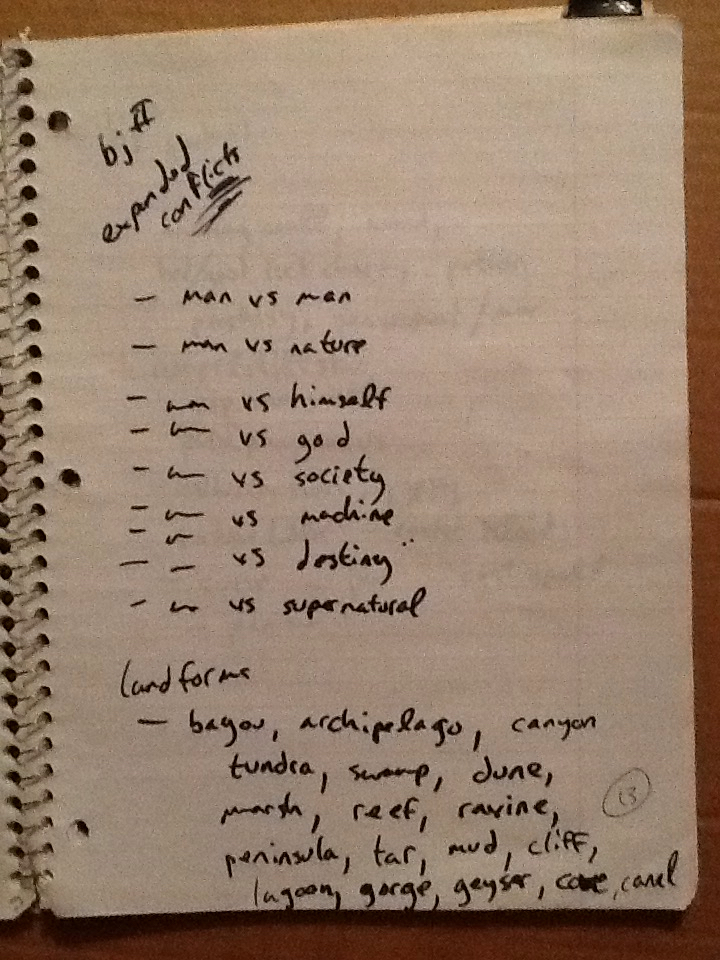 bj II
expanded
conflicts
- man vs man
- man vs nature
- vs himself
- vs god
- vs society
- vs machine
- vs destiny
- vs supernatural
landforms
- bayou, archipelago, canyon
tundra, swamp, dune,
marsh, reef, ravine,
13
peninsula, tar, mud, cliff,
lagoon, gorge, geyser, cave, canal